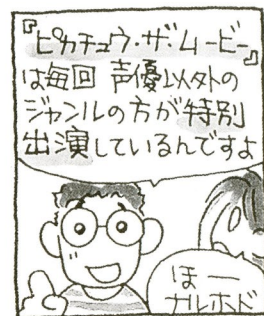 『ピカチュウ・ザ・ムービー』
は毎回 声優以外の
ジャンルの方が特別
出演しているんですよ
ほー
ナルホド